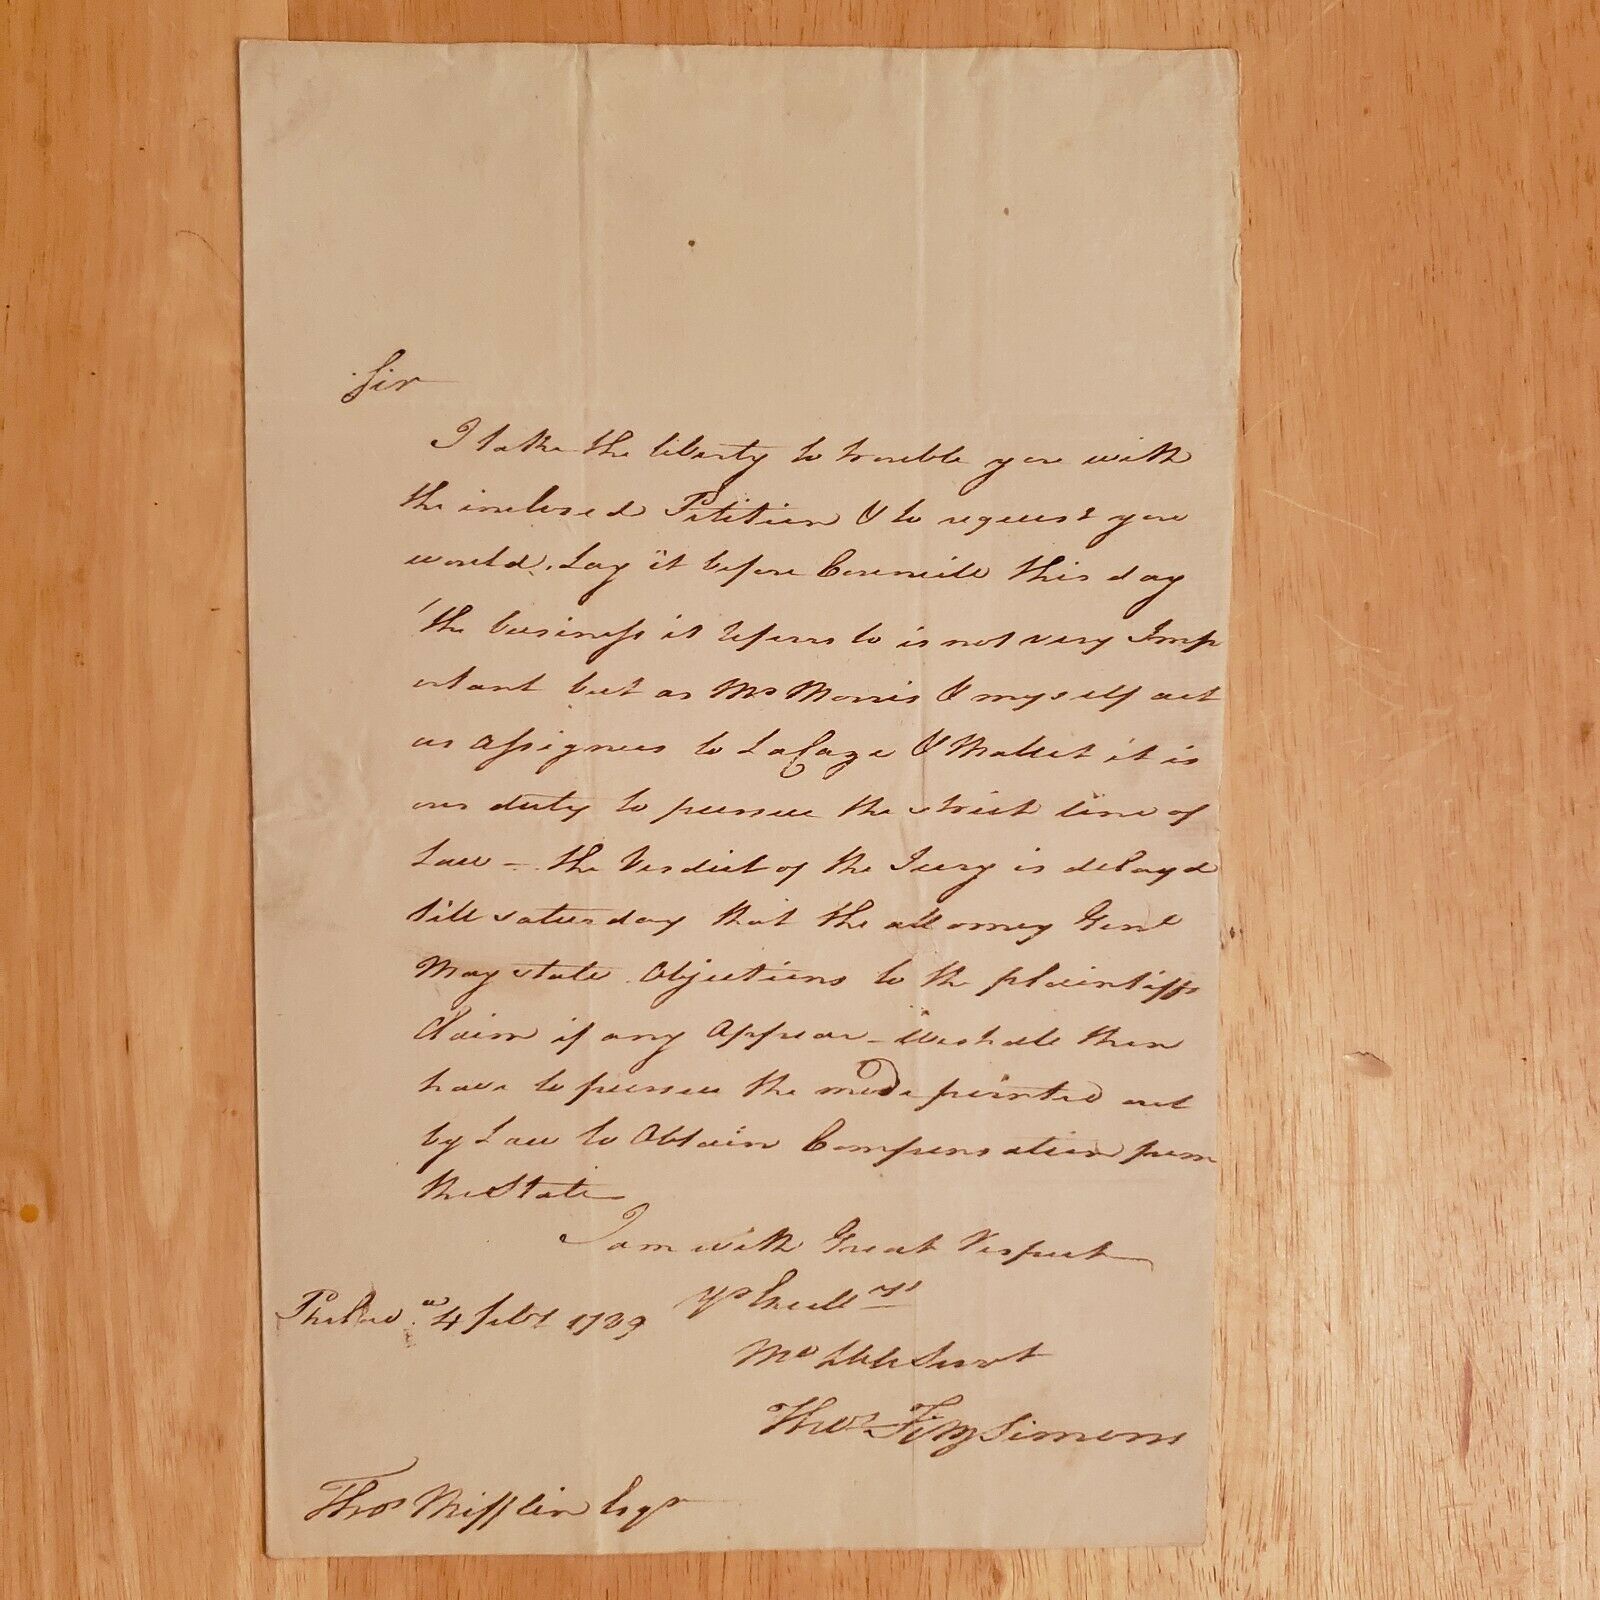 Sir
I take the liberty to trouble you with
the inclosed Petition & to request you
would, Lay it before Councill this day
the business it refers to is not very Imp
ortant but as Mr Morris & myself act
as assignees to LaCaze & Mallet it is
our duty to pursue the strict line of
Law – the Verdict of the Jury is delayd
till saturday that the attorney Genl
May state Objections to the plaintiffs
Claim if any Appear – we shall then
have to pursue the mode pointed out
by Law to Obtain Compensation from
the State
I am with Great Respect
Yr Excelly's
Philada 4 febr 1789
Mo Hble Servt
Thos FitzSimons
Thos Mifflin Esqr